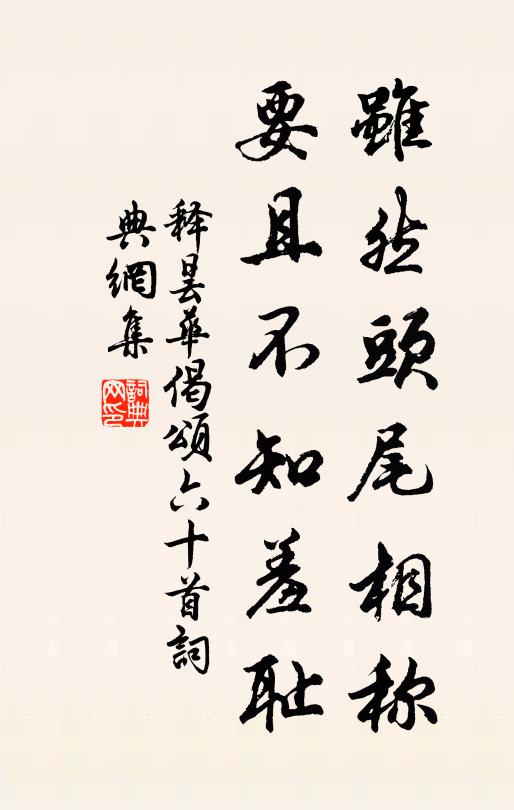 雖然頭尾相称
要且不知羞耻
释曇華偈頌六十首詞
典網集
詞典网印